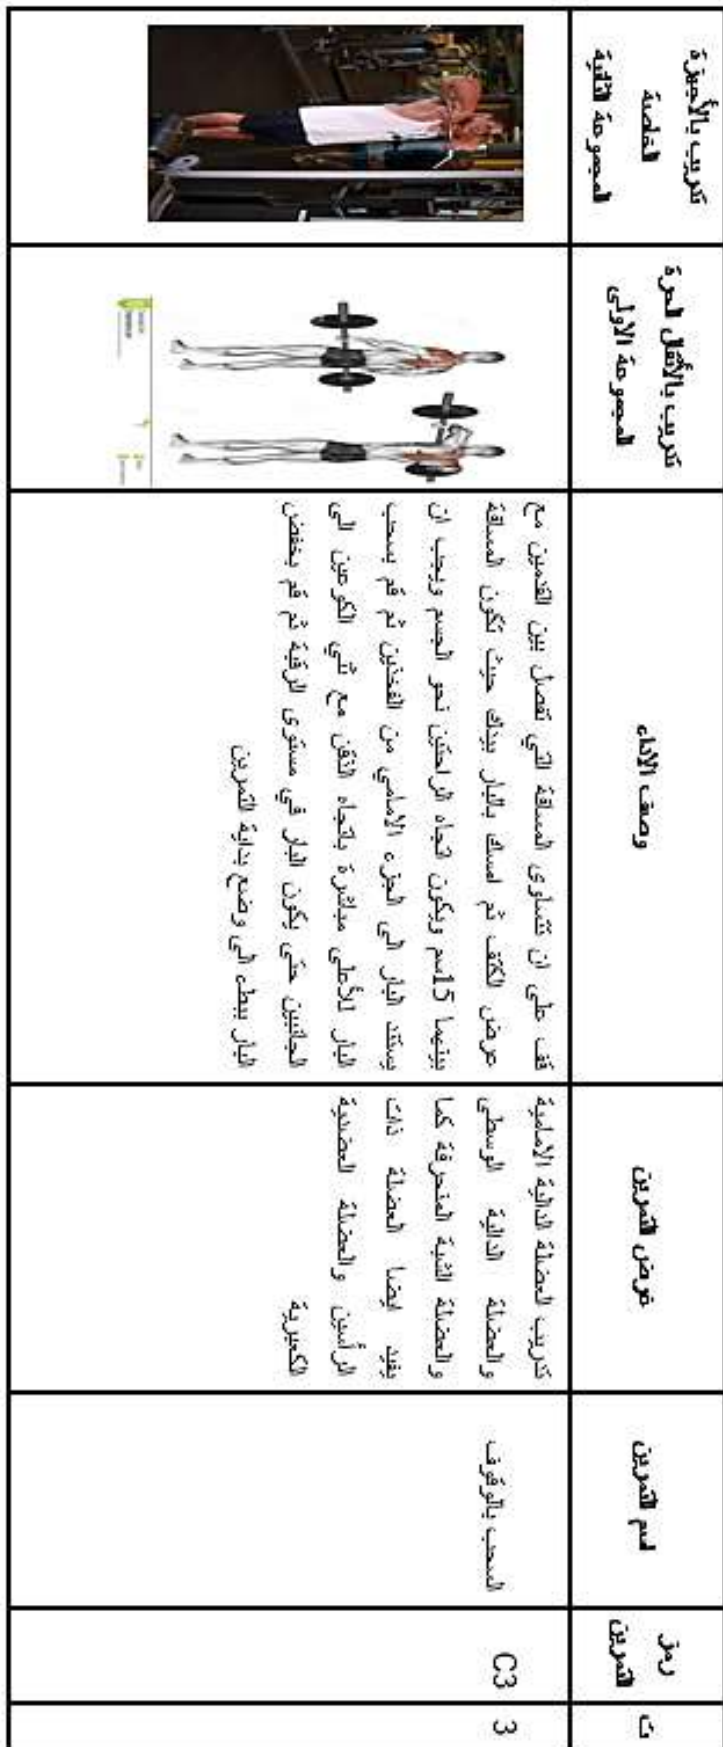 ت
رمز
التمرين
اسم التمرين
غرض التمرين
وصف الاداء
تدريب بالأثقال الحرة
المجموعة الاولى
تدريب بالأجهزة
الخاصة
المجموعة الثانية
3
C3
السحب بالوقوف
تدريب العضلة الدالية الامامية
والعضلة الدالية الوسطى
والعضلة الثنية المنحرفة كما
يفيد ايضا العضلة ذات
الرأسين والعضلة العضدية
الكعبرية
قف على ان تتساوى المسافة التي تفصل بين القدمين مع
عرض الكتف ثم امسك بالبار بيدك حيث تكون المسافة
بينهما 15سم ويكون اتجاه الراحتين نحو الجسم ويجب ان
يستند البار الى الجزء الامامي من الفخذين ثم قم بسحب
البار للأعلى مباشرة باتجاه الذقن مع ثني الكوعين الى
الجانبين حتى يكون البار في مستوى الرقبة ثم قم بخفض
البار ببطء الى وضع بداية التمرين